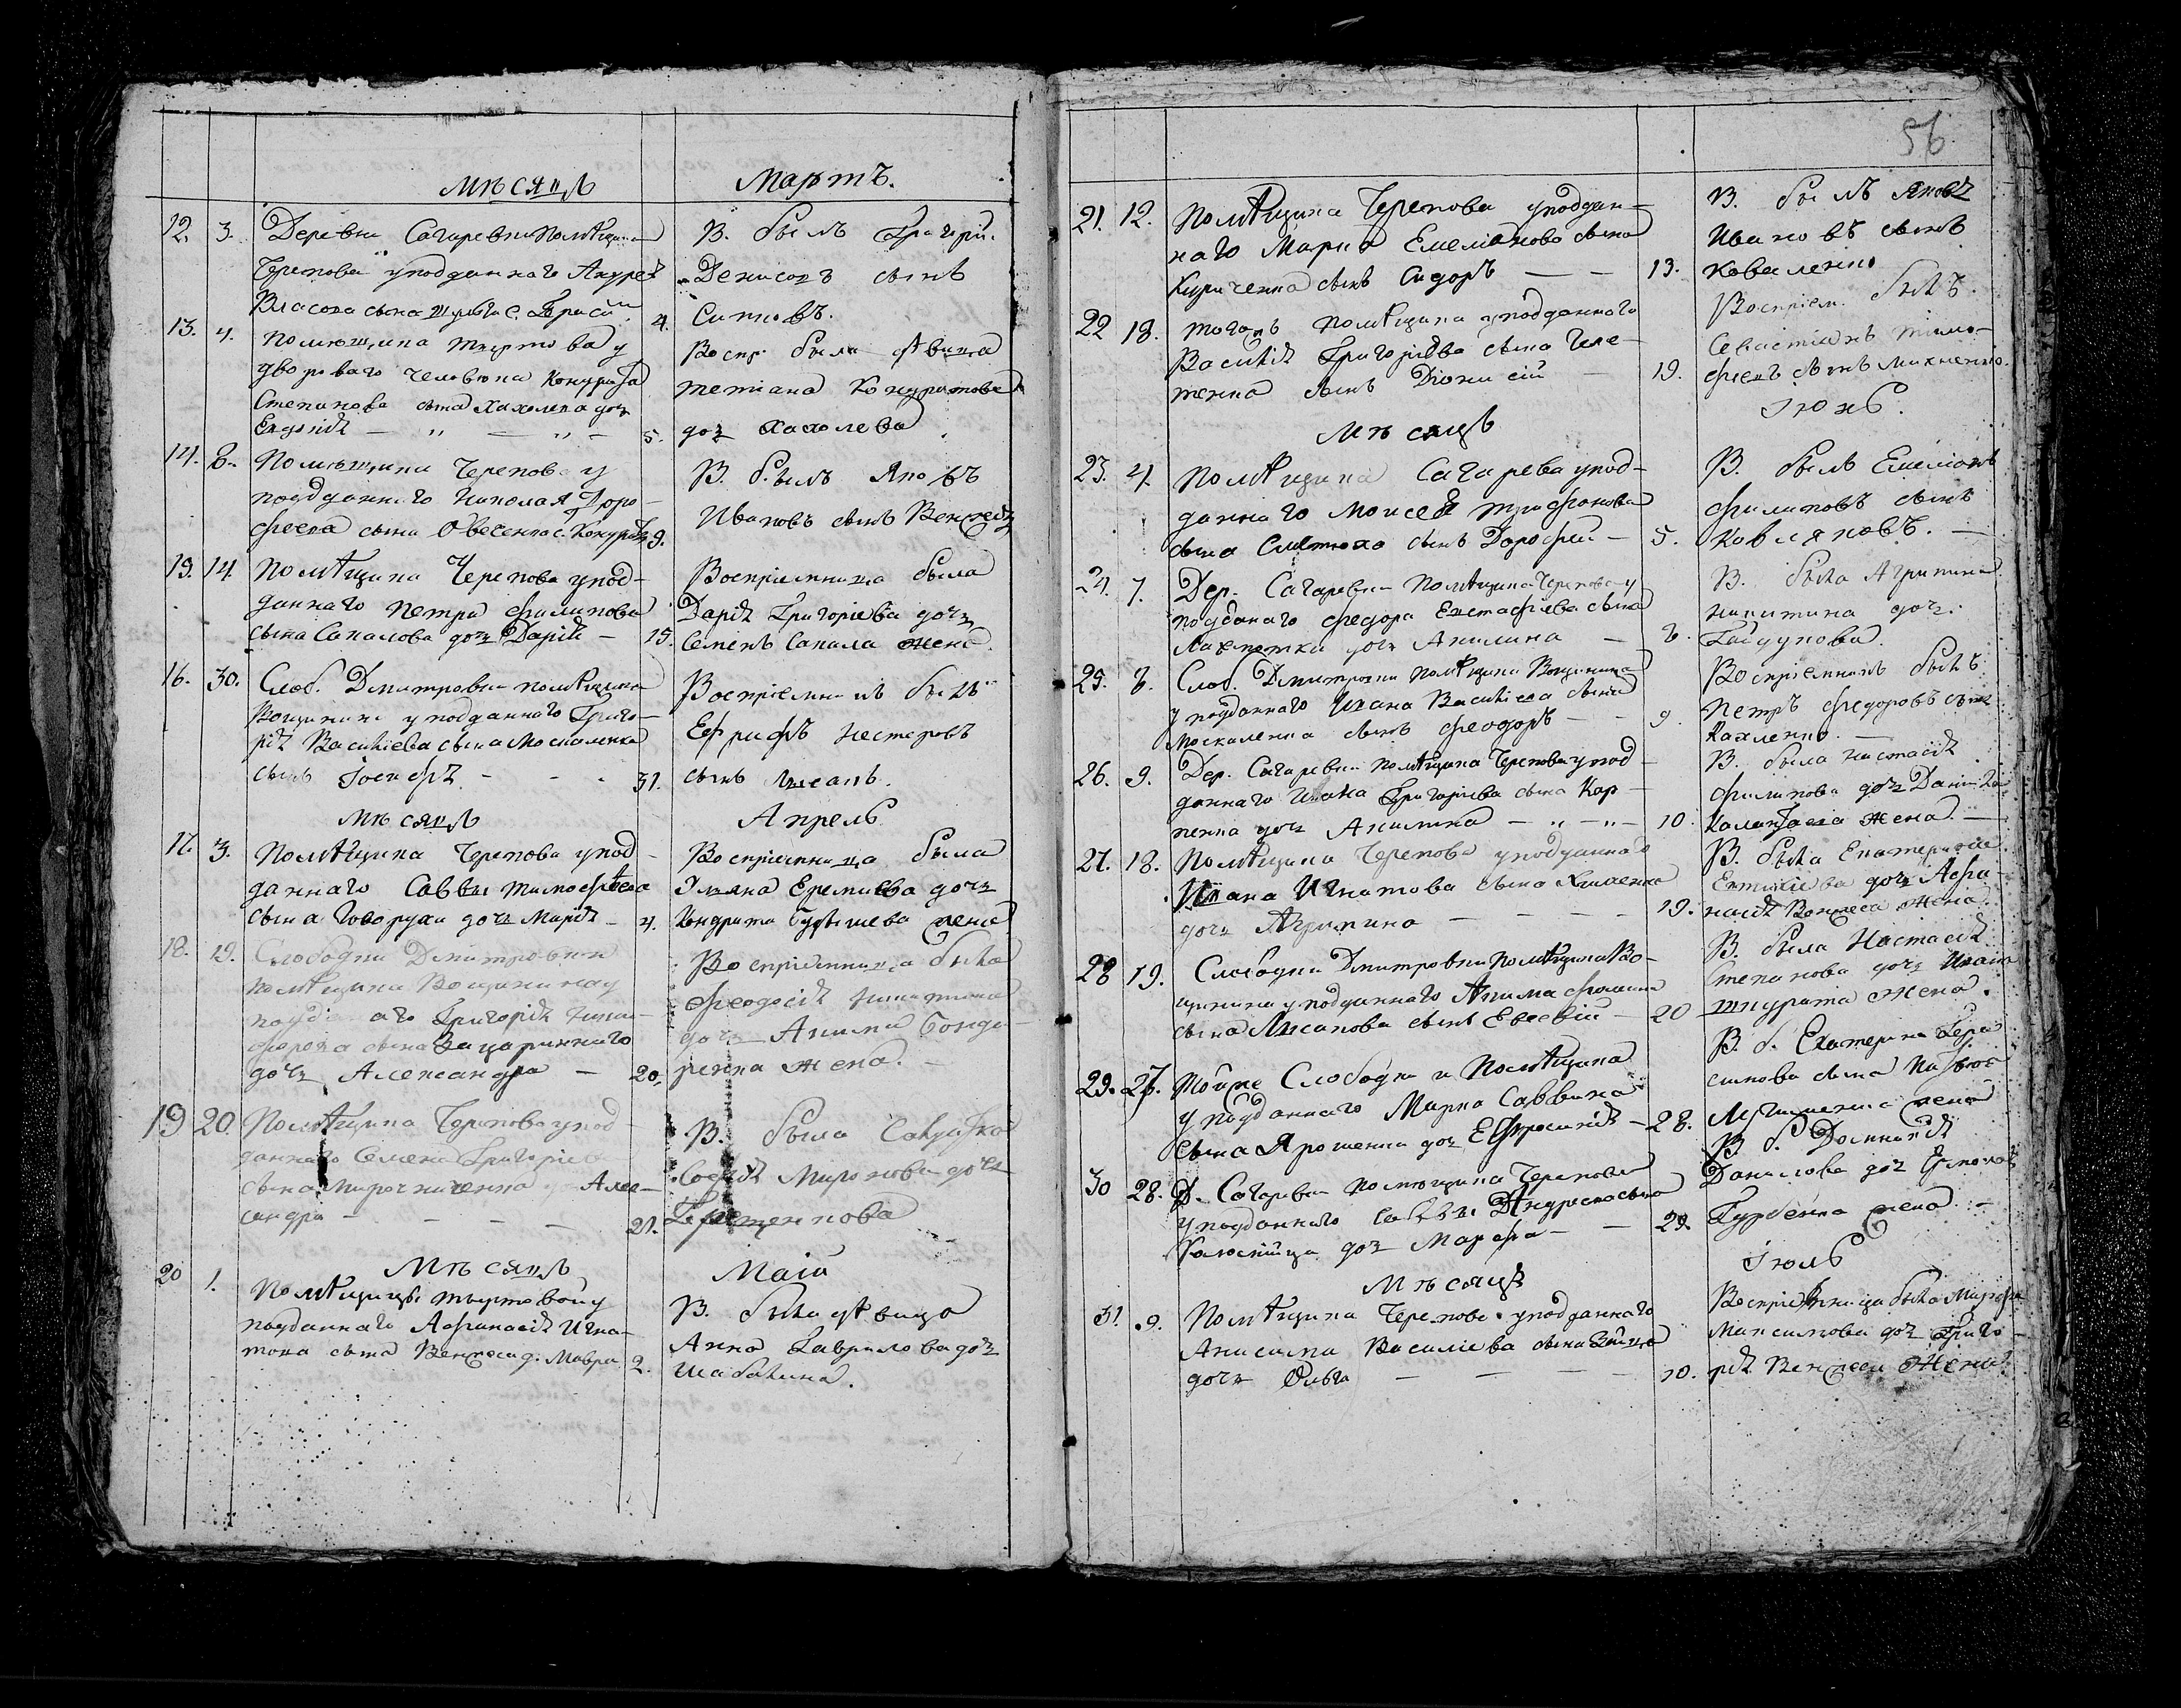 Мѣсяцъ Мартъ.
12. 3. Деревни Сагаревки Помѣщика
Черепова у подданнаго Андрея
Власова сына с. Герасим
4.
В. былъ Григорій
Денисовъ сынъ
Ситновъ.
13. 4. Помѣщика Тиртова у
двороваго человѣка Кондрата
Степанова сына Хахолева дочь
Евдокія — „ — „ — 5.
Воспр. была дѣвица
Тетіана Кондратова
дочь Хахолева
14. 8. Помѣщика Черепова у
подданнаго Николая Доро-
феева сына Овесенко с. Кондратъ 9.
В. былъ Яковъ
Ивановъ сынъ Венжега
15. 14. Помѣщика Черепова у под-
даннаго Петра Филипова
сына Сапалова дочь Дарія — 15.
Воспріемница была
Дарія Григоріева дочь
Семенъ Сапала жена.
16. 30. Слоб. Дмитровки помѣщика
Вощинина у подданнаго Григо-
рія Василіева сына Москаленка
сынъ Іосифъ - - - 31.
Воспріемникъ былъ
Ефрифъ Нестеровъ
сынъ Лисанъ.
Мѣсяцъ Апрель
17. 3. Помѣщика Черепова у под-
даннаго Саввы Тимофѣева
сына Говорухи дочь Марія — 4.
Воспріемница была
Ульяна Еремиева дочь
Кондрата жена
18. 19. Слободки Дмитровки
помѣщика Вощинина у
подданнаго Григорія Ники-
форова сына Зацариннаго
дочь Александра — 20.
Воспріемница была
Феодосія Никитина
дочь Акима Бонда-
ренка жена. —
19 20. Помѣщика Черепова у под-
даннаго Семена Григоріева
сына Мирочниченка дочь Алек-
сандра — — — — 21.
В. была
Софія Миронова дочь
Терещенкова
Мѣсяцъ Маій
20 1. Помѣщицы Тыртовой у
подданнаго Афанасія Игна-
това сына Венжега д. Мавра 2.
В. была дѣвица
Анна Гаврилова дочь
Шабакина.
56
21. 12. Помѣщика Черепова у поддан-
наго Марка Емеліанова сына
Кириченка сынъ Сидоръ — — 13.
В. былъ Яковъ
Ивановъ сынъ
Коваленко
22 18. Тогожъ помѣщика у подданнаго
Василія Григоріева сына Геле-
тенка сынъ Діонисій — 19.
Воспріем. былъ
Севастіянъ Тимо-
феевъ сынъ Михненко.
Мѣсяцъ Іюнь.
23. 4. Помѣщика Сагарева у под-
даннаго Моисея Трифонова
сына Сметюхо сынъ Дорофей — 5.
В. былъ Емеліянъ
Филиповъ сынъ
Ковляковъ. —
24. 7. Дер. Сагаревки Помѣщика Черепова у
подданаго Федора Евстафіева сына
Лахметки дочь Акилина — 8.
В. была Агрипина
Никитина дочь.
Гайдукова.
25. 8. Слоб. Дмитровки Помѣщика Вощинина
у подданнаго Ивана Василіева сына
Москаленка сынъ Феодоръ — — 9.
Воспріемникъ былъ
Петръ Федоровъ сынъ
Кахленко. —
26. 9. Дер. Сагаревки Помѣщика Черепова у под-
даннаго Ивана Григоріева сына Кар-
пенка дочь Акилина — „ — „ — 10.
В. была Настасія
Филипова дочь Даніила
жена. —
27. 18. Помѣщика Черепова у подданнаго
Ивана Игнатова сына
дочь Агрипина — — — — 19.
В. была Екатерина
дочь Афа-
насія Венжеса жена
28 19. Слободки Дмитровки помѣщика Во-
щинина у подданнаго Акима Фомина
сына Лисакова сынъ Евсевій — 20
В. была Настасія
Степанова дочь Ивана
Шкурата жена.
29. 27. Тойже Слободки и Помѣщика
у подданнаго Марка Саввина
сына Ярошенка дочь Ефросинія — 28.
В. б. Екатерина Гера-
симова
жена
30 28. Д. Сагаревки помѣщика Черепова
у подданнаго Саввы Андреева сына
дочь Марфа — — 29.
В. б. Домникія
Данилова дочь
Гурбенка жена —
Мѣсяцъ Іюль
31. 9. Помѣщика Черепова у подданнаго
Анисима Василіева сына Зайца
дочь Ольга — — — 10.
Воспріемница была Марфа
Максимова дочь Григо-
рія Венжеги Жена.